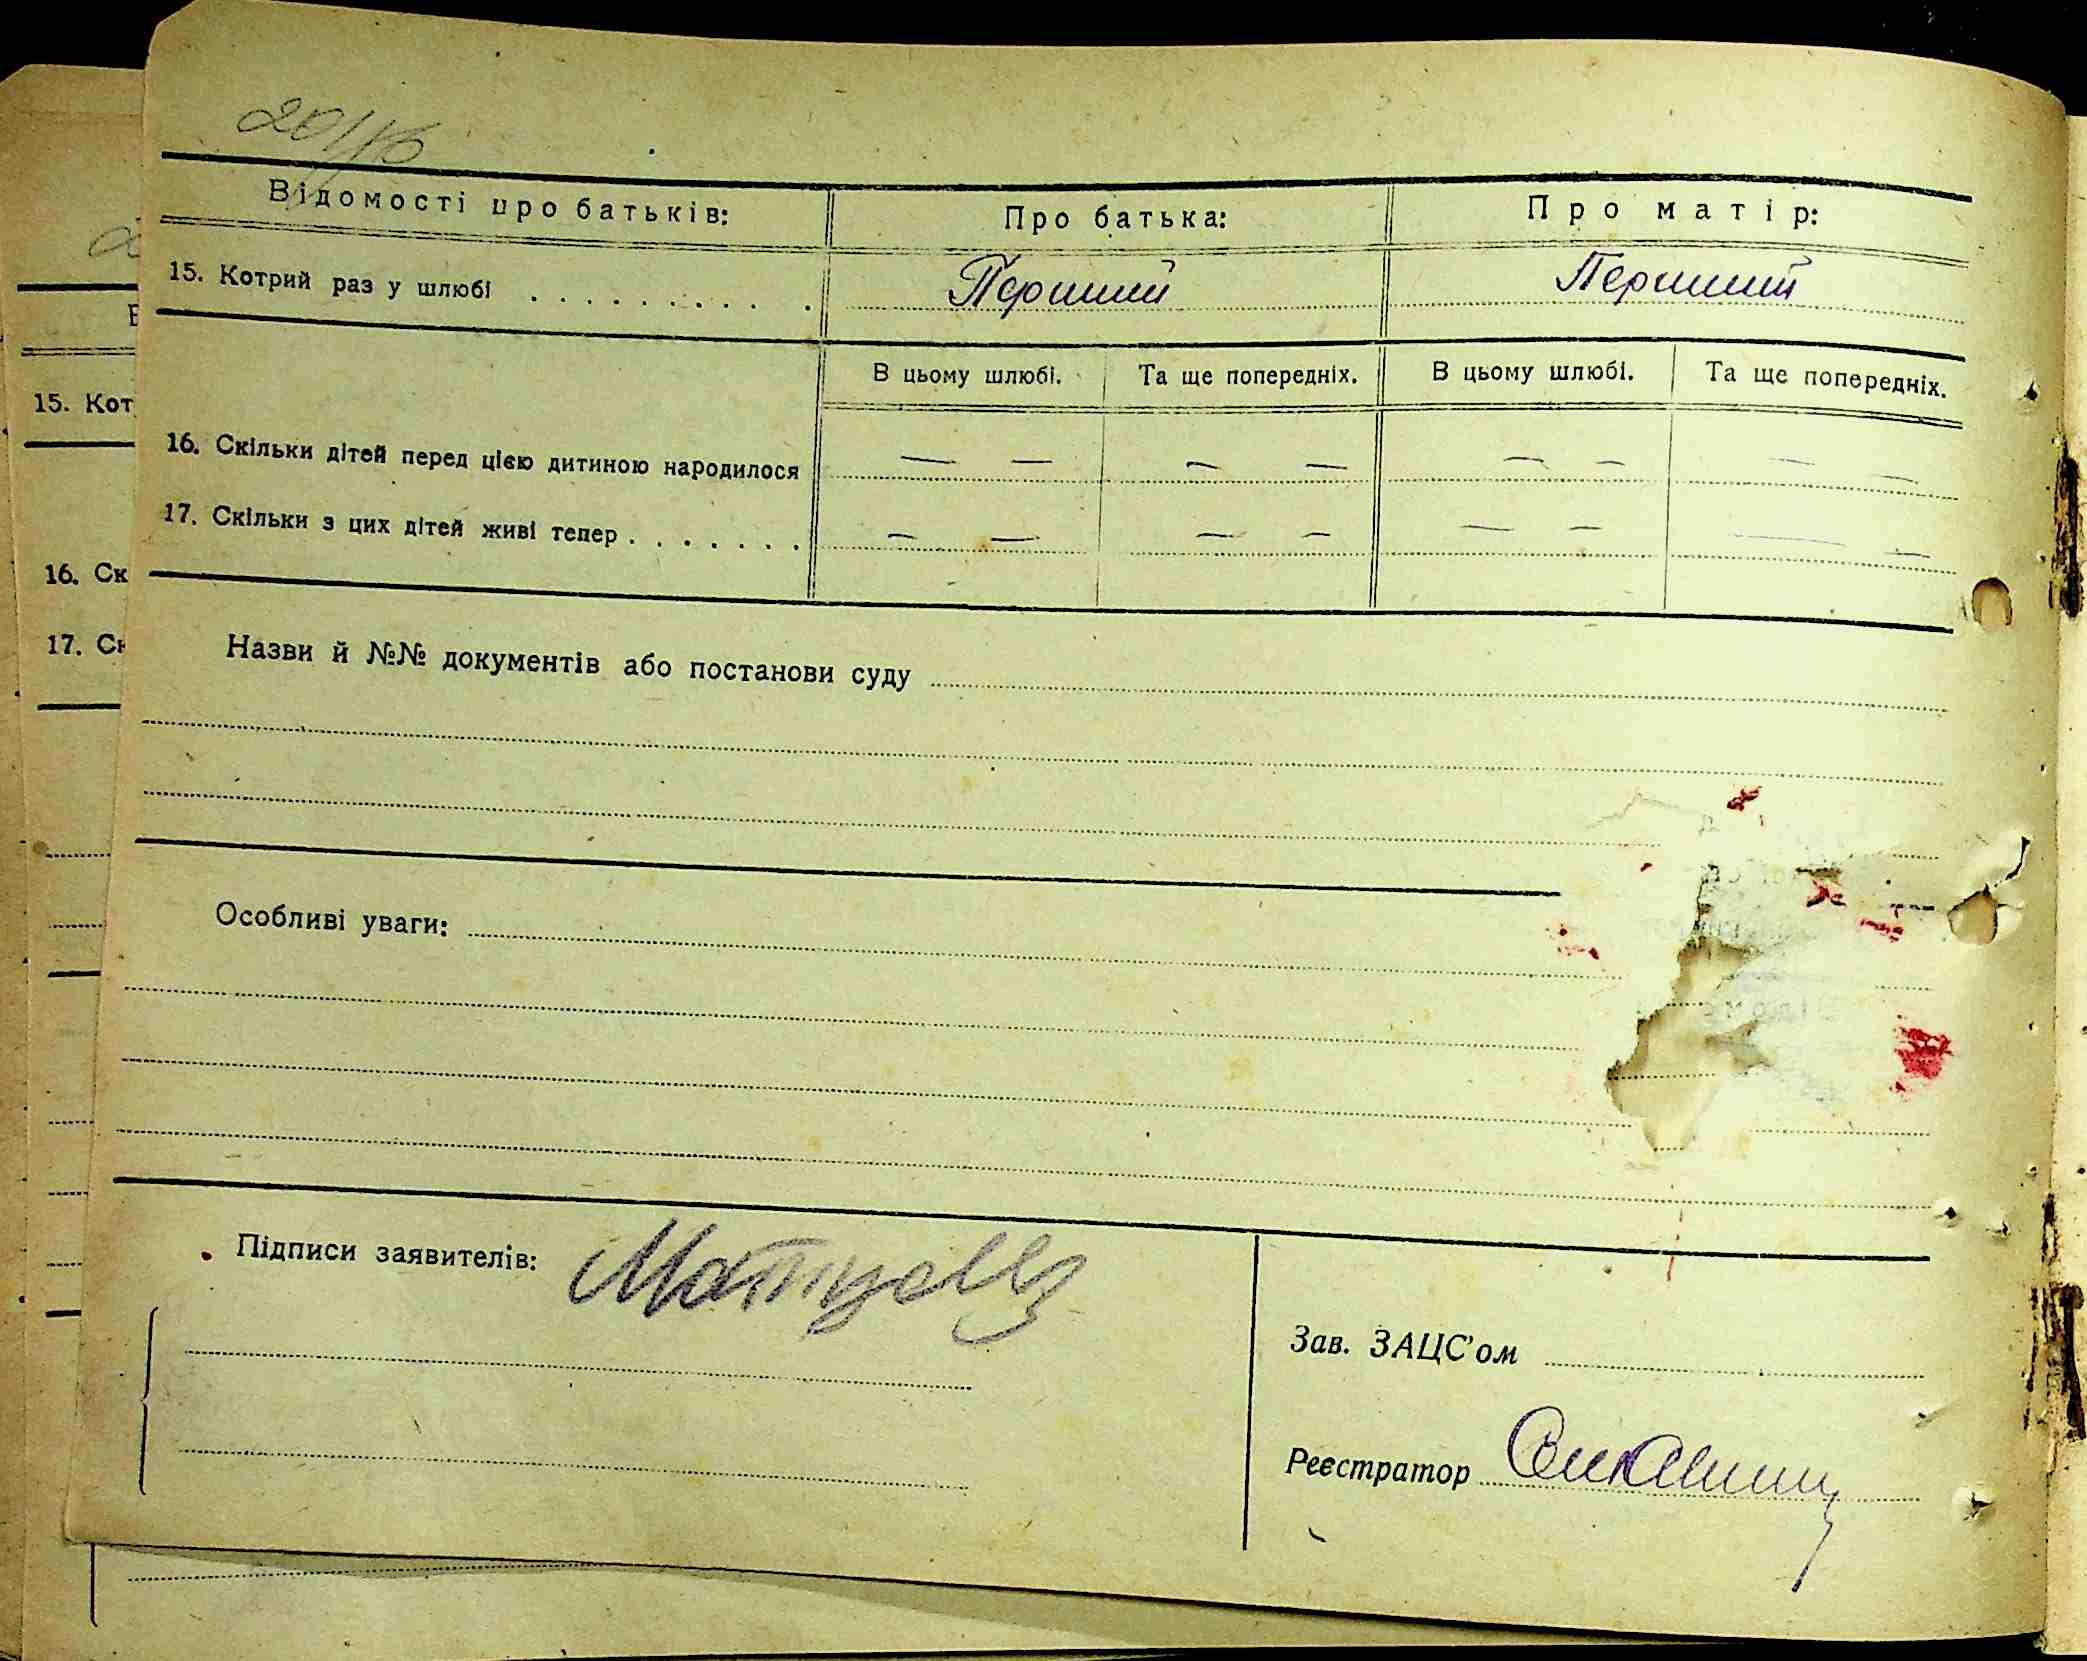 20/16
Відомості про батьків: Про батька: Про матір:
15. Котрий раз у шлюбі . . . . . . . . . . Перший Перший
В цьому шлюбі. Та ще попередніх. В цьому шлюбі. Та ще попередніх.
16. Скільки дітей перед цією дитиною народилося — — — — — — — —
17. Скільки з цих дітей живі тепер . . . . . . . — — — — — — — —
Назви й №№ документів або постанови суду
Особливі уваги:
Підписи заявителів:
Зав. ЗАЦС'ом
Реєстратор
15. Кот
16. Ск
17. Ск